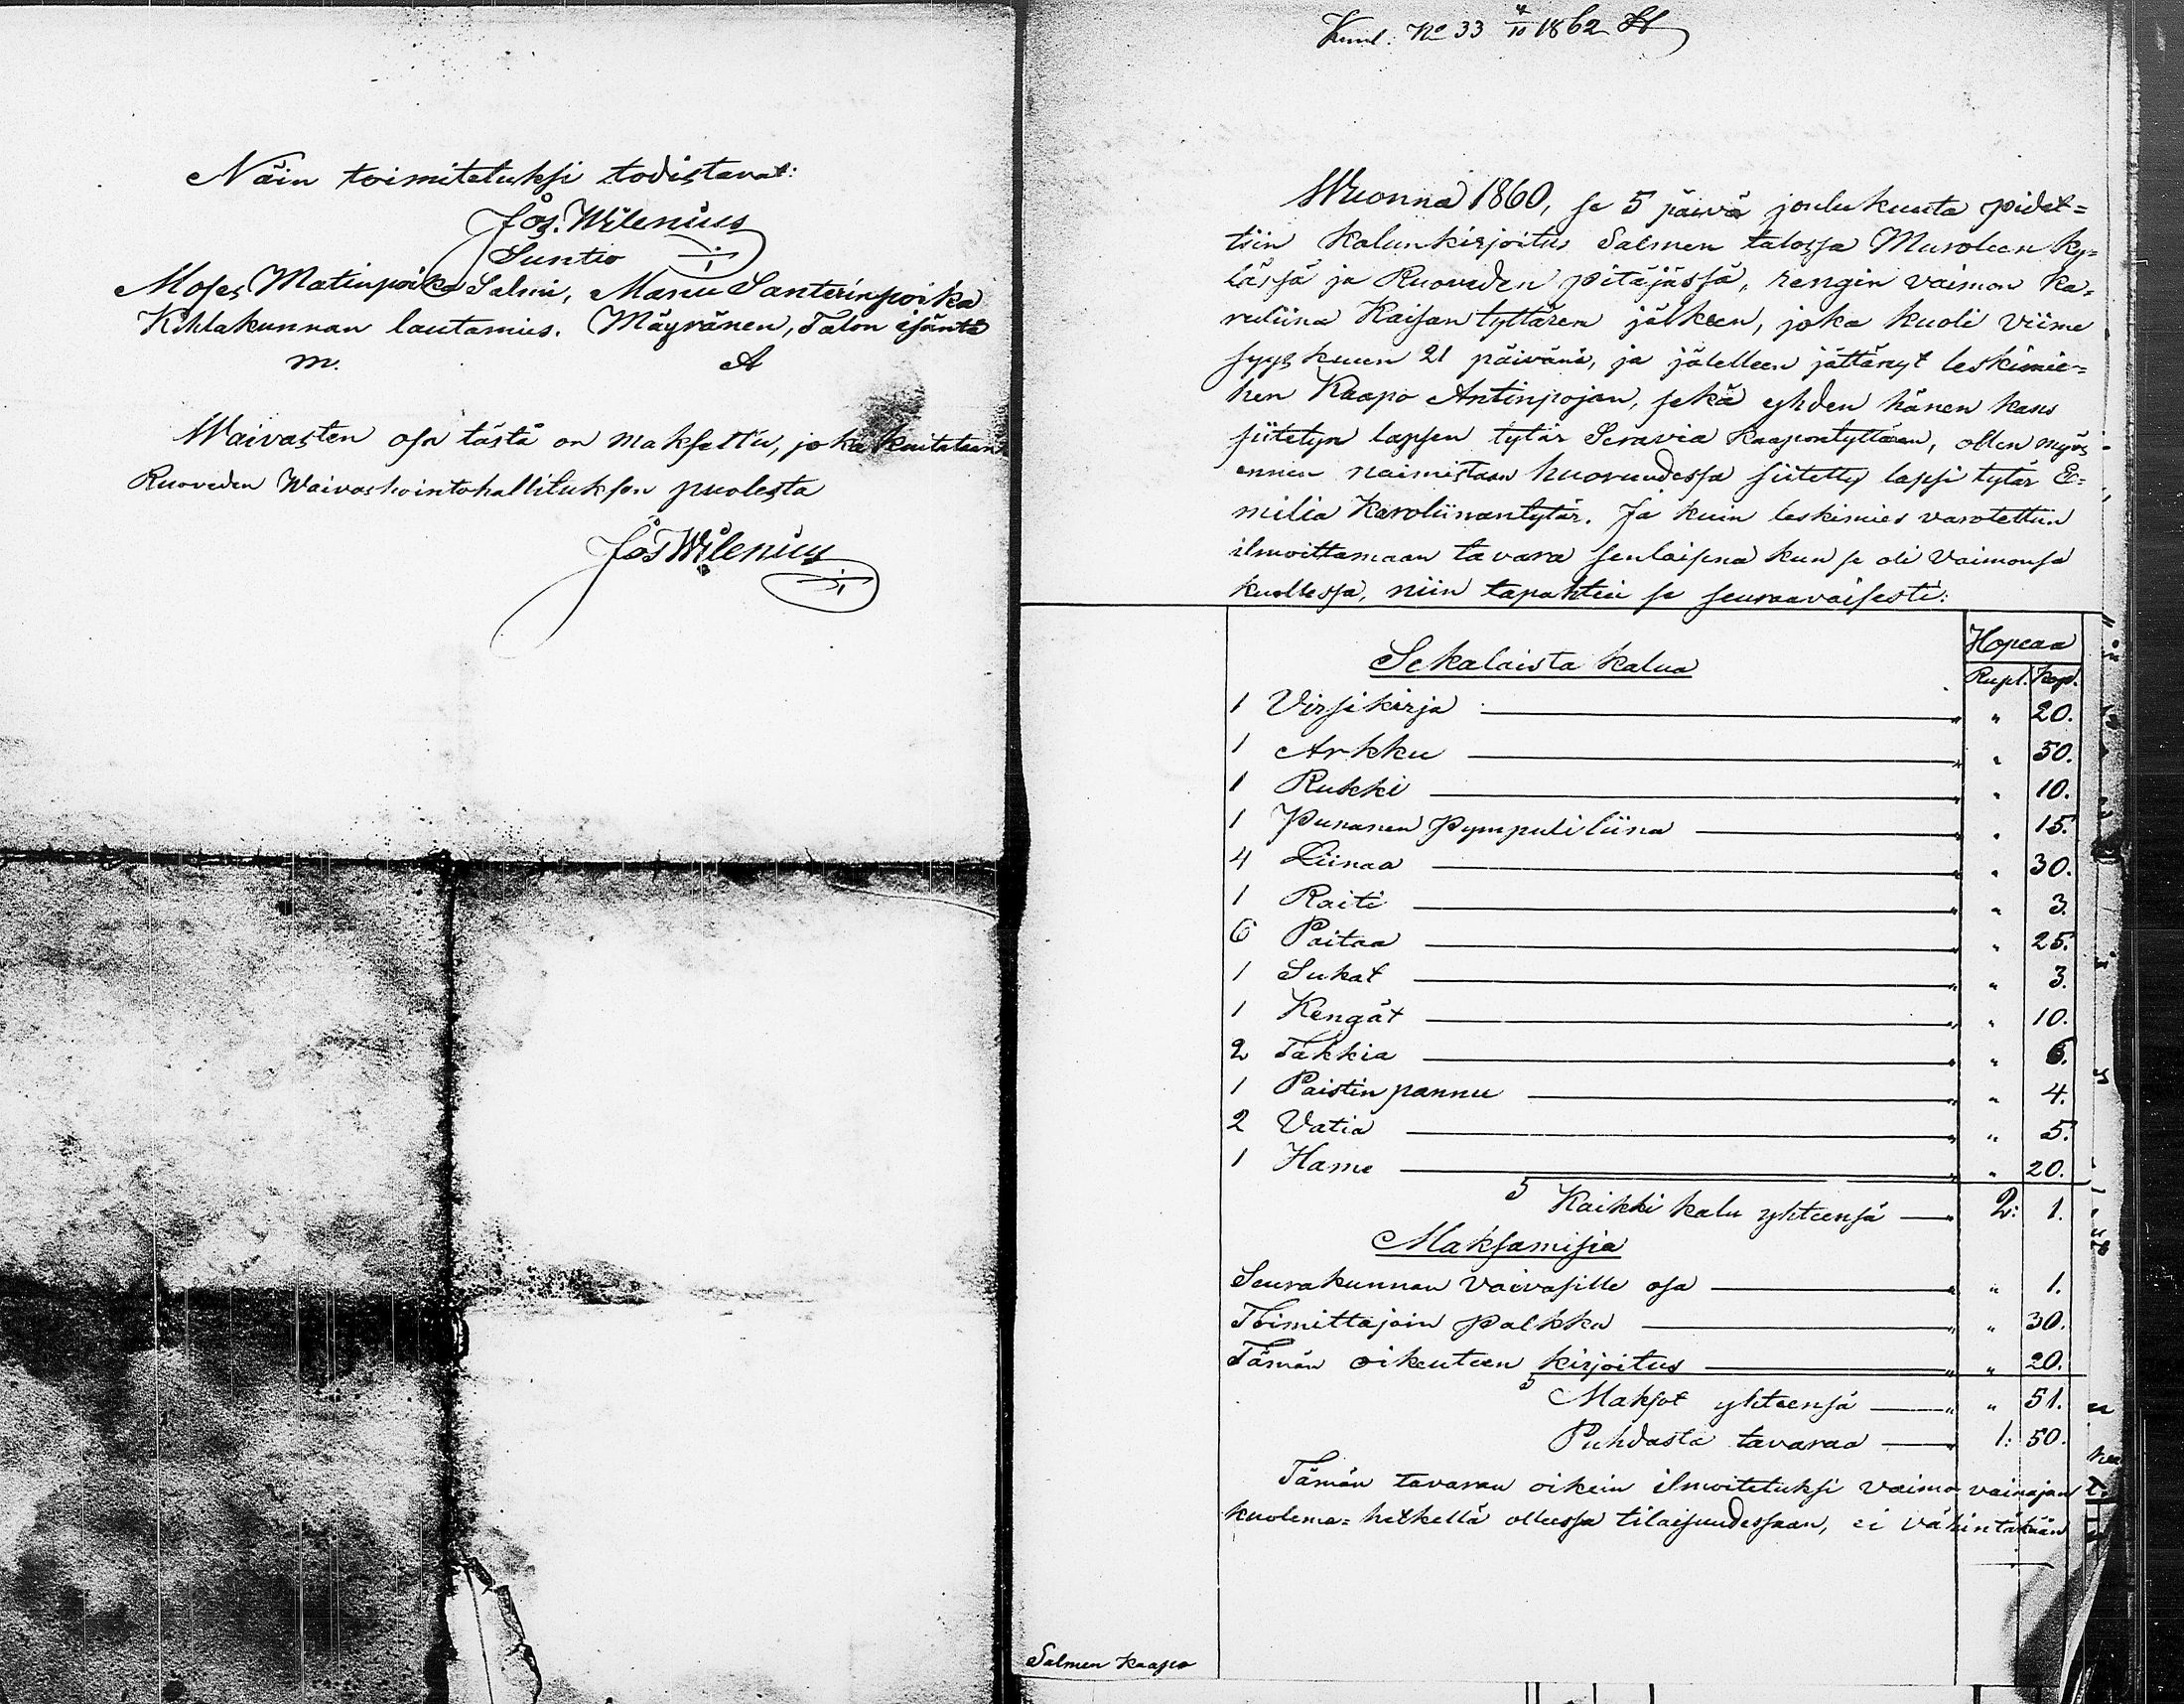 Näin toimitetuksi todistavat:
Jos. Wilenius
Suntio
Moses Matinpoika Salmi, Manu Santerinpoika
Kihlakunnan lautamies. Mäyränen, Talon isäntä
m. A
Waivasten osa tästä on maksettu, joka kuitataan
Ruoveden Waivashointohallituksen puolesta
Jos Wilenius
No 33 4/10 1862
Wuonna 1860, se 5 päivä joulukuuta pidet=
tiin Kalunkirjoitus Salmen talossa Muroleen ky=
lässä ja Ruoveden pitäjässä, rengin vaimon Ka=
roliina Kaisantyttären jälkeen, joka kuoli viime
syyskuun 21 päivänä, ja jälelleen jättänyt leskimie=
hen Kaapo Antinpojan, sekä yhden hänen kans
siitetyn lapsen tytär Seravia Kaapontyttären, ollen myös
ennen naimistaan huoruudessa siitetty lapsi tytär E=
milia Karoliinantytär. Ja kuin leskimies varotettiin
ilmoittamaan tavara senlaisna kun se oli vaimonsa
kuollessa, niin tapahtui se seuraavaisesti:
Hopeaa
Sekalaista kalua Rupl. Kop.
1 Virsikirja " 20.
1 Arkku " 50.
1 Rukki " 10.
1 Punanen Pympuliliina " 15.
4 Liinaa " 30.
1 Raiti " 3.
6 Paitaa " 25.
1 Sukat " 3.
1 Kengät " 10.
2 Takkia " 6.
1 Paistinpannu " 4.
2 Vatia " 5.
1 Hame " 20.
Kaikki kalu yhteensä 2: 1.
Maksamisia
Seurakunnan vaivasille osa " 1.
Toimittajain palkka " 30.
Tämän oikeuteen kirjoitus " 20.
Maksot yhteensä " 51.
Puhdasta tavaraa 1: 50.
Tämän tavaran oikein ilmoitetuksi vaimo vainajan
kuolema=hetkellä olleessa tilaisuudessaan, ei vähintäkään
Salmen Kaapo